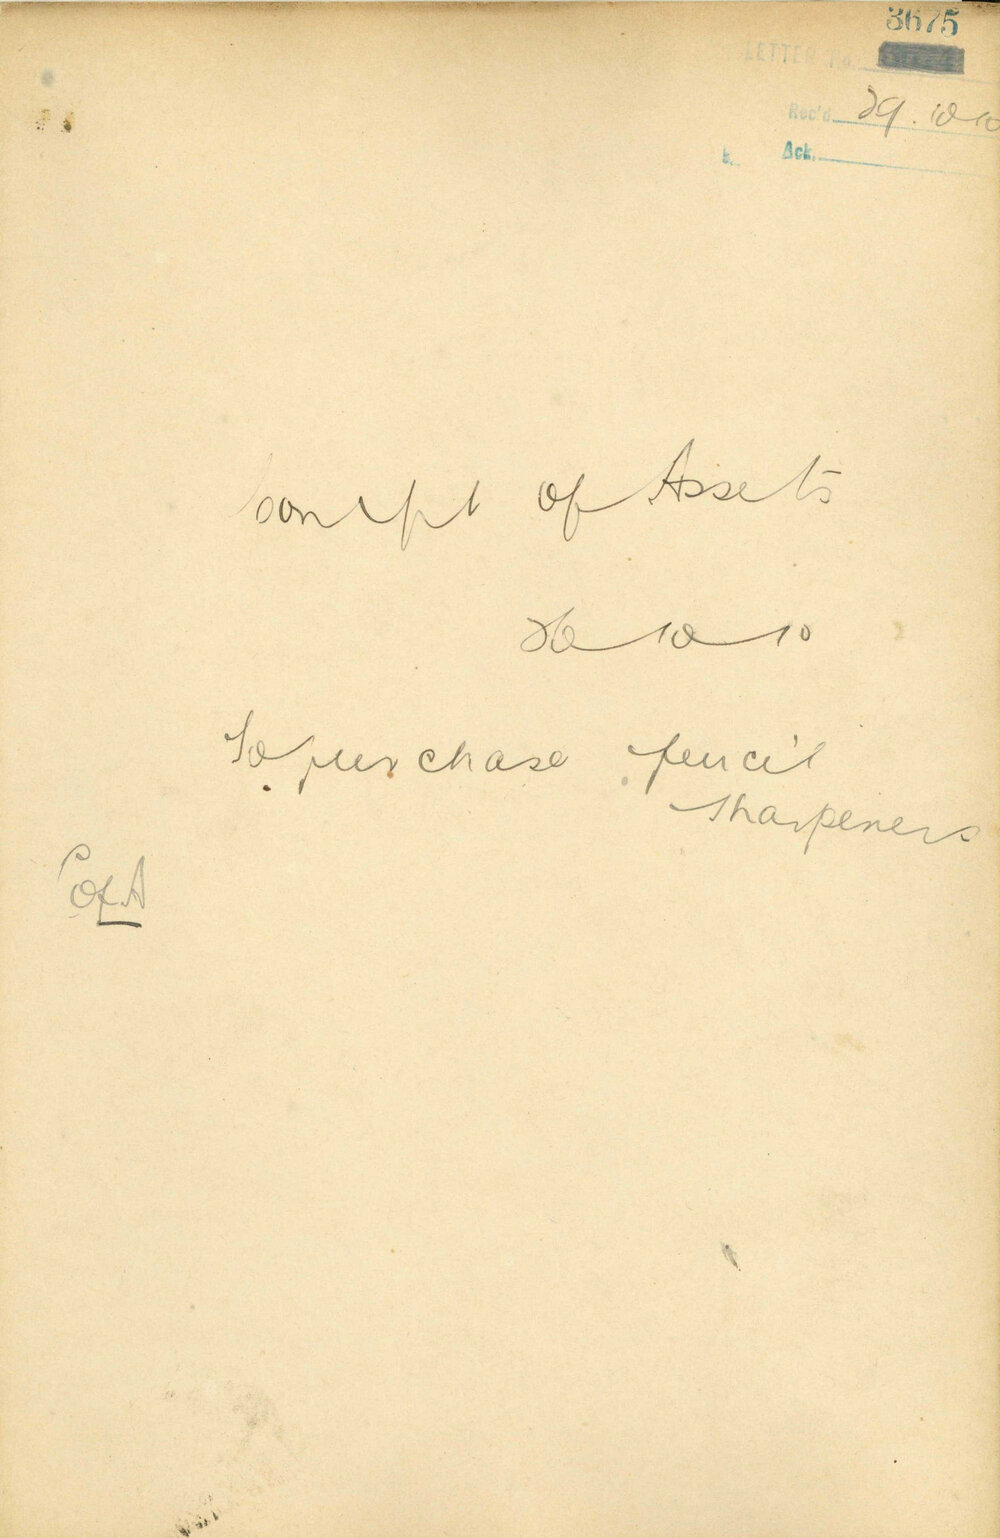 3675
LETTER No.
Rec'd 29.10.10
Ack.
of Assets
26 10 10
To purchase pencil
sharpeners
C of A